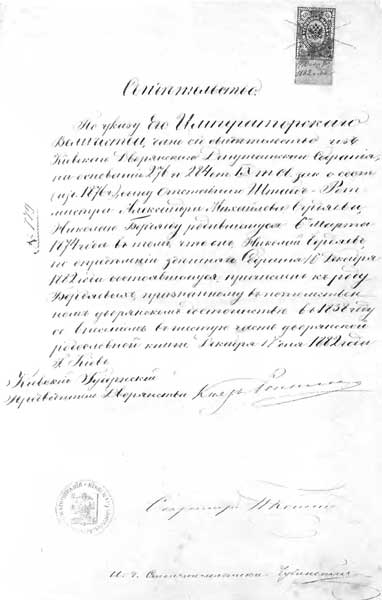 Свидѣтельство.
По указу Его Императорского
Величества, дано сіе свидѣтельство изъ
Кіевскаго Дворянскаго Депутатскаго Собранія,
на основаніи 276 и 284 ст. IX т. Св. зак. о сост.
(изд. 1876 г.), сыну Отставнаго Штабъ-Рот-
мистра Александра Михайловича Бердяева,
Николаю Бердяеву родившемуся 6 Марта
1874 года въ томъ, что онъ Николай Бердяевъ,
по опредѣленію здѣшняго Собранія 16 Декабря
1882 года состоявшемуся, причисленъ къ роду
Бердяевыхъ, признанному въ потомствен-
номъ дворянскомъ достоинствѣ въ 1838 году
со внесеніемъ въ шестую часть дворянской
родословной книги. Декабря 18 дня 1882 года
г. Кіевъ
№ 779
Кіевскій Губернскій
Предводитель Дворянства Князь Репнинъ
Секретарь
И. д.